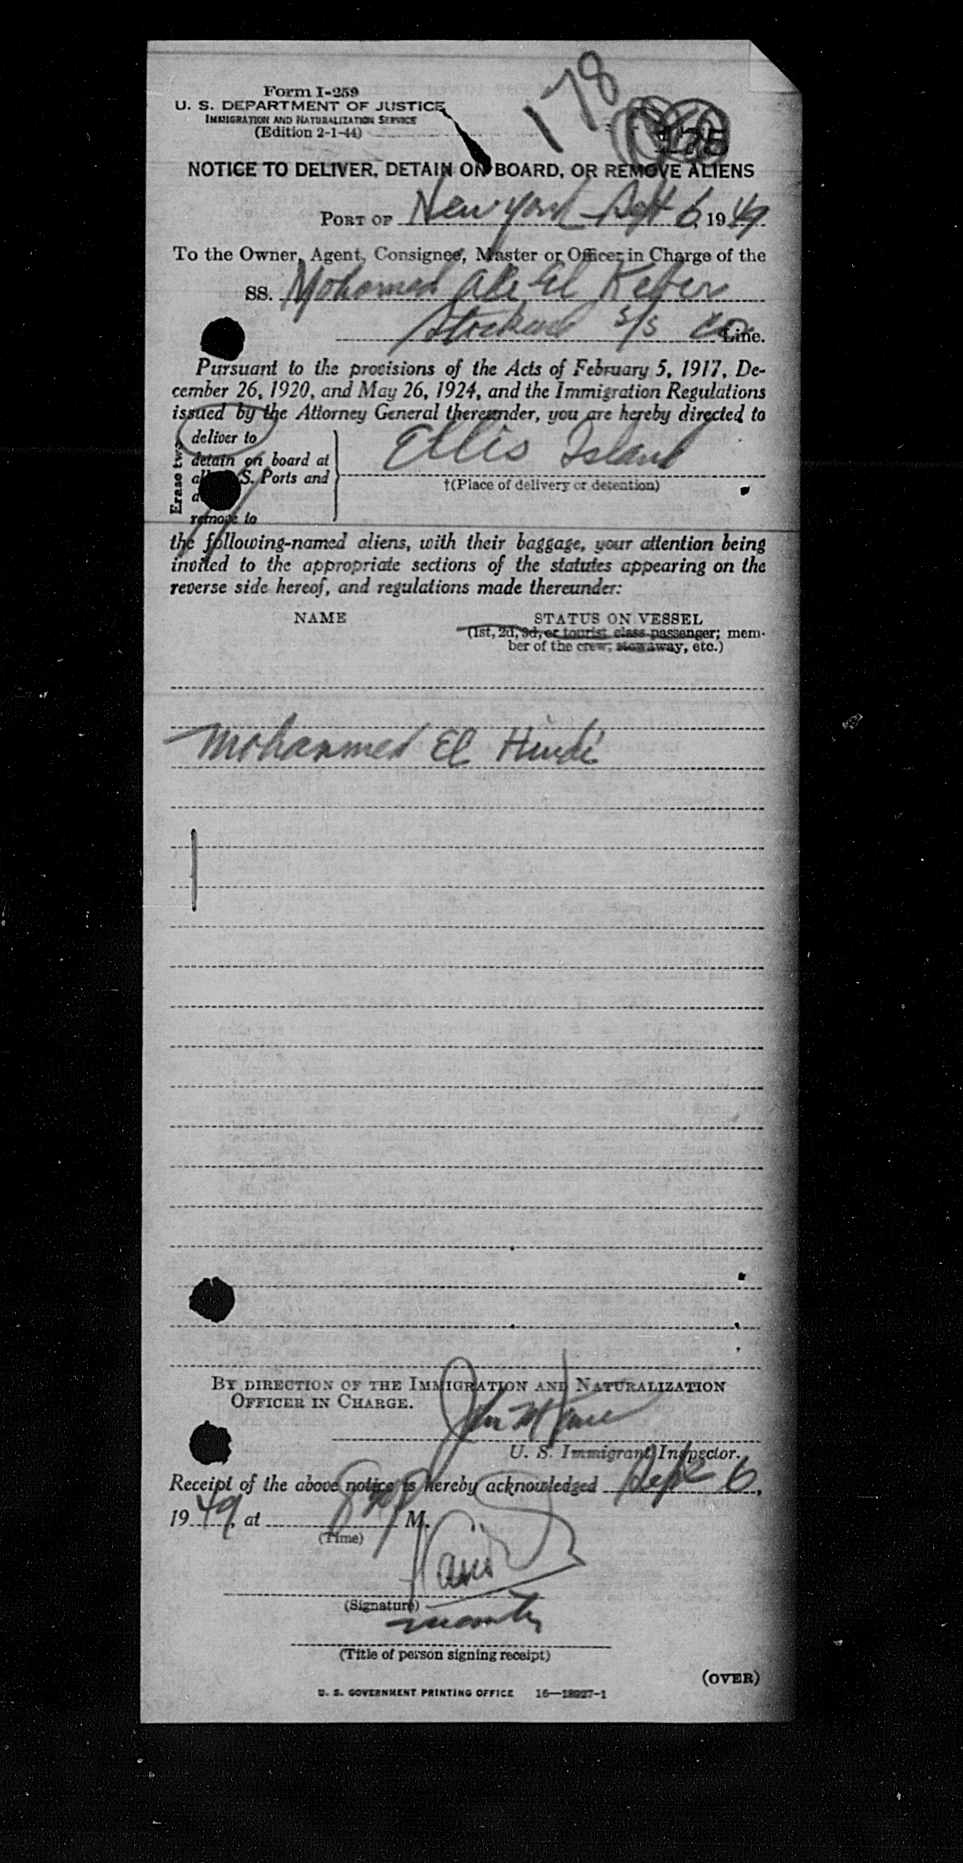 178
175
Form I-259
U. S. DEPARTMENT OF JUSTICE
IMMIGRATION AND NATURALIZATION SERVICE
(Edition 2-1-44)
NOTICE TO DELIVER, DETAIN ON BOARD, OR REMOVE ALIENS
PORT OF New York Sept 6, 1949
To the Owner, Agent, Consignee, Master or Officer in Charge of the
SS. Mohamed Ali El Kebir
Stockard S/S Co. Line.
Pursuant to the provisions of the Acts of February 5, 1917, De-
cember 26, 1920, and May 26, 1924, and the Immigration Regulations
issued by the Attorney General thereunder, you are hereby directed to
Erase two
deliver to
detain on board at
S. Ports and
remove to
Ellis Island
†(Place of delivery or detention)
the following-named aliens, with their baggage, your attention being
invited to the appropriate sections of the statutes appearing on the
reverse side hereof, and regulations made thereunder:
NAME STATUS ON VESSEL
(1st, 2d, 3d, or tourist class passenger; mem-
ber of the crew, stowaway, etc.)
Mohammed El Hindi
BY DIRECTION OF THE IMMIGRATION AND NATURALIZATION
OFFICER IN CHARGE.
John
U. S. Immigrant Inspector.
Receipt of the above notice is hereby acknowledged Sept 6,
1949, at M.
(Time)
(Signature)
(Title of person signing receipt)
(OVER)
U. S. GOVERNMENT PRINTING OFFICE 16—18927-1